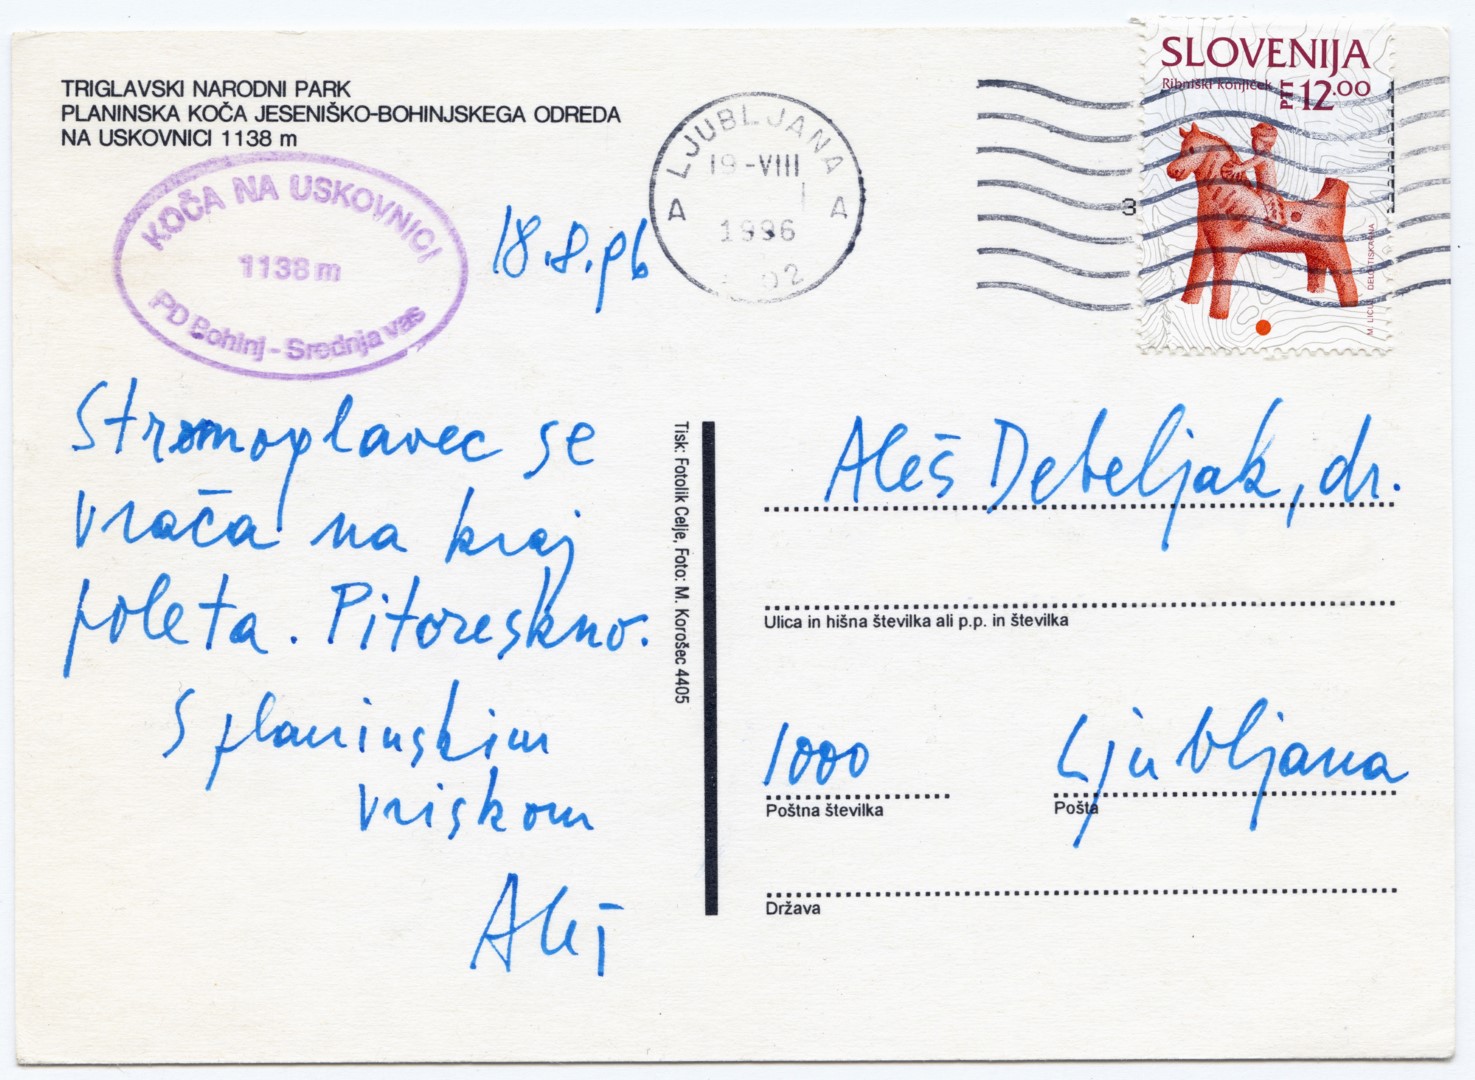 TRIGLAVSKI NARODNI PARK
PLANINSKA KOČA JESENIŠKO-BOHINJSKEGA ODREDA
NA USKOVNICI 1138 m
KOČA NA USKOVNICI
1138 m
PD Bohinj - Srednja vas
18.8.96
LJUBLJANA
19-VIII
1996
A A
02
3
SLOVENIJA
Ribniški konjiček
PTT 12.00
M. LICUL DELO-TISKARNA
Stromoplavec se
vrača na kraj
poleta. Pitoreskno.
S planinskim
vriskom
Aleš
Tisk: Fotolik Celje, Foto: M. Korošec 4405
Aleš Debeljak, dr.
Ulica in hišna številka ali p.p. in številka
1000 Ljubljana
Poštna številka Pošta
Država